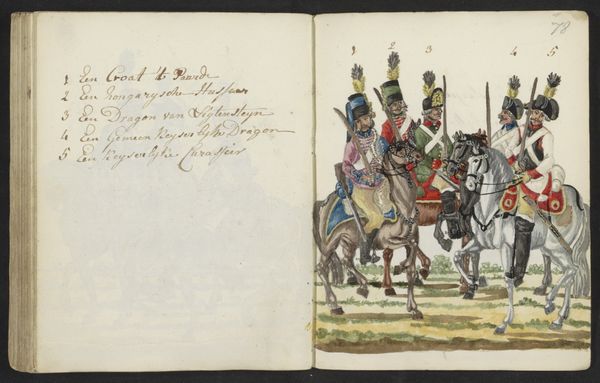 1 Een Croat 't Paerde
2 Een hongarysche Hussaar
3 Een Dragon van Ligtensteyn
4 Een Gemeen Keyserlyke Dragon
5 Een Keyserlyke Curassier
78
1 2 3 4 5